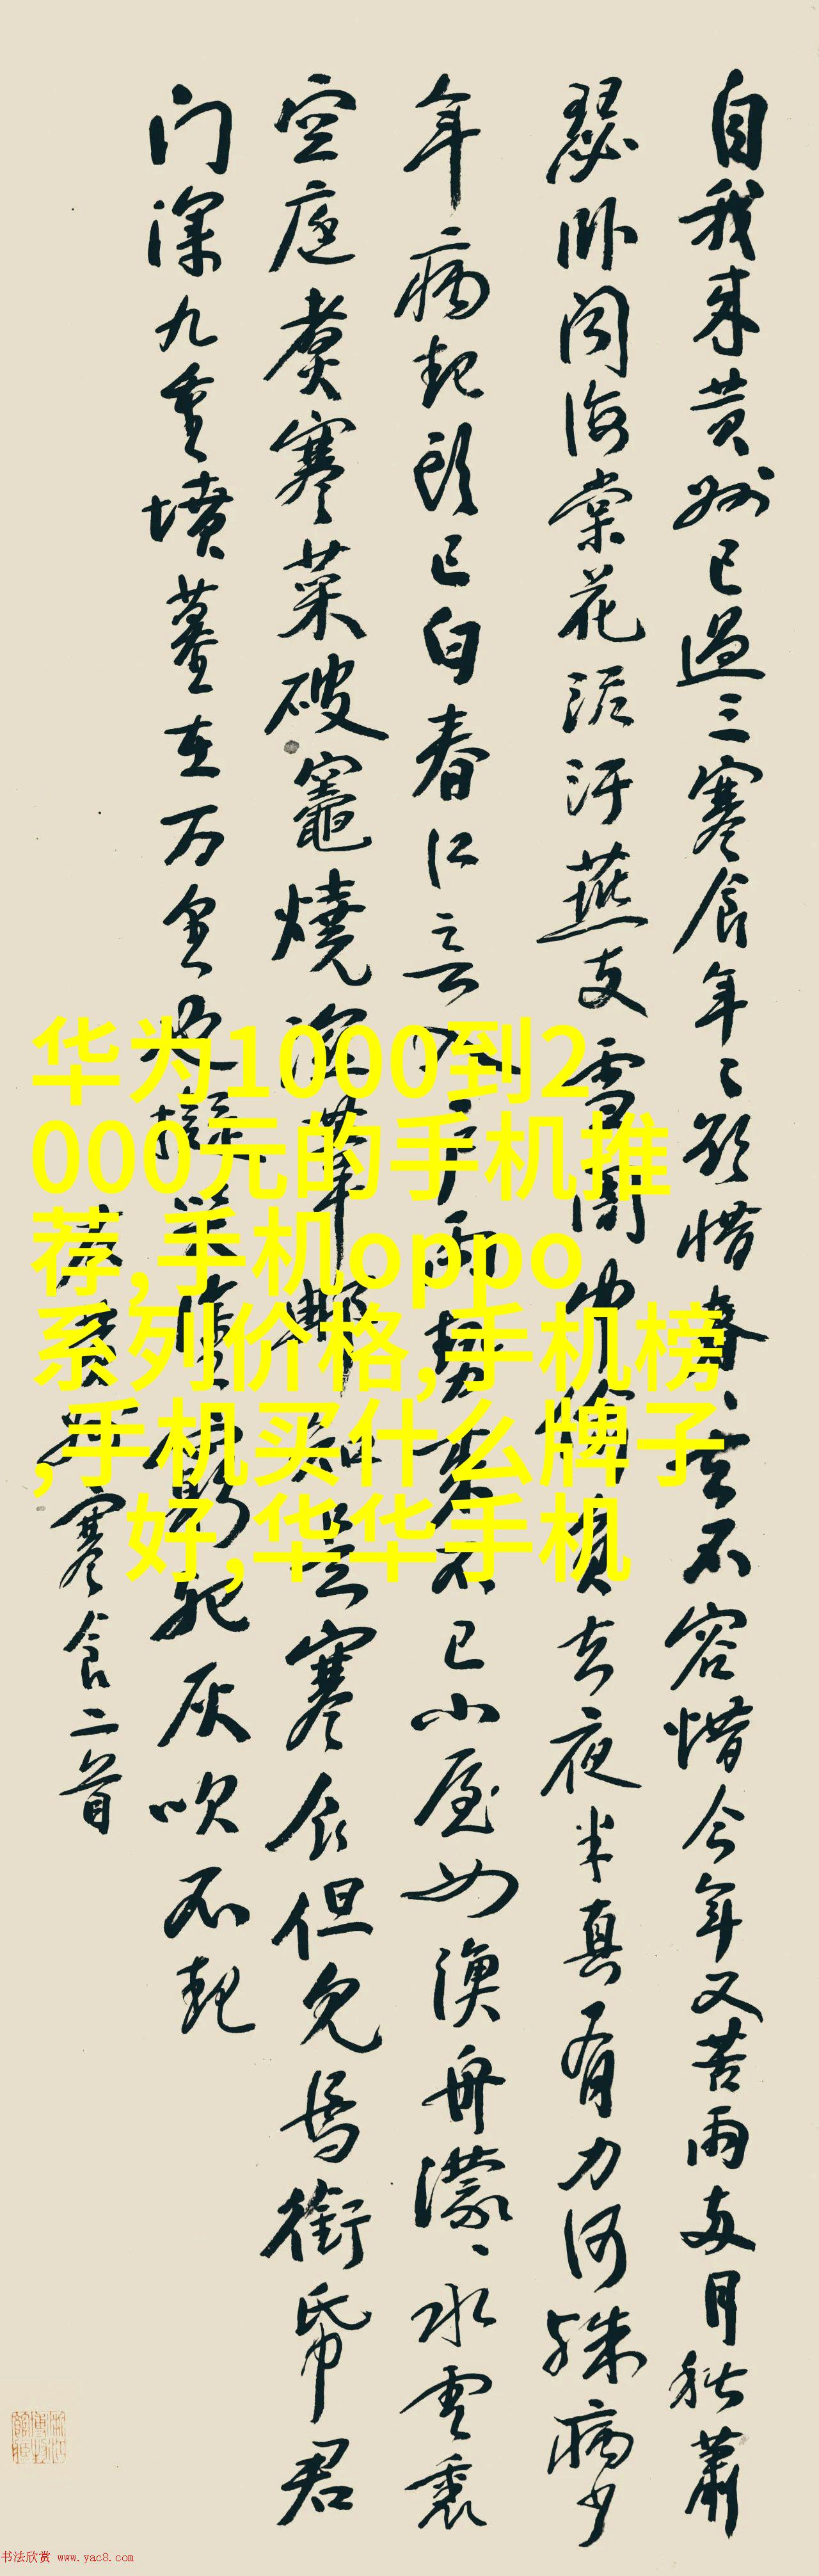 自我来黄州已過三寒食年々欲惜春、去不容惜今年又苦雨两月秋蕭
瑟卧闻海棠花泥汙燕支雪闇中偷負去夜半真有力何殊病少
年病起頭已白春江入户雨勢来不已小屋如漁舟濛、水雲裏
空庭煑寒菜破竈燒湿苇那知是寒食但見烏銜帋君
门深九重墳墓在万里也擬哭塗窮死灰吹不起
黄州寒食二首
华为1000到2
000元的手机推
荐,手机oppo
系列价格,手机榜
,手机买什么牌子
好,华华手机
书法欣赏 www.yac8.com